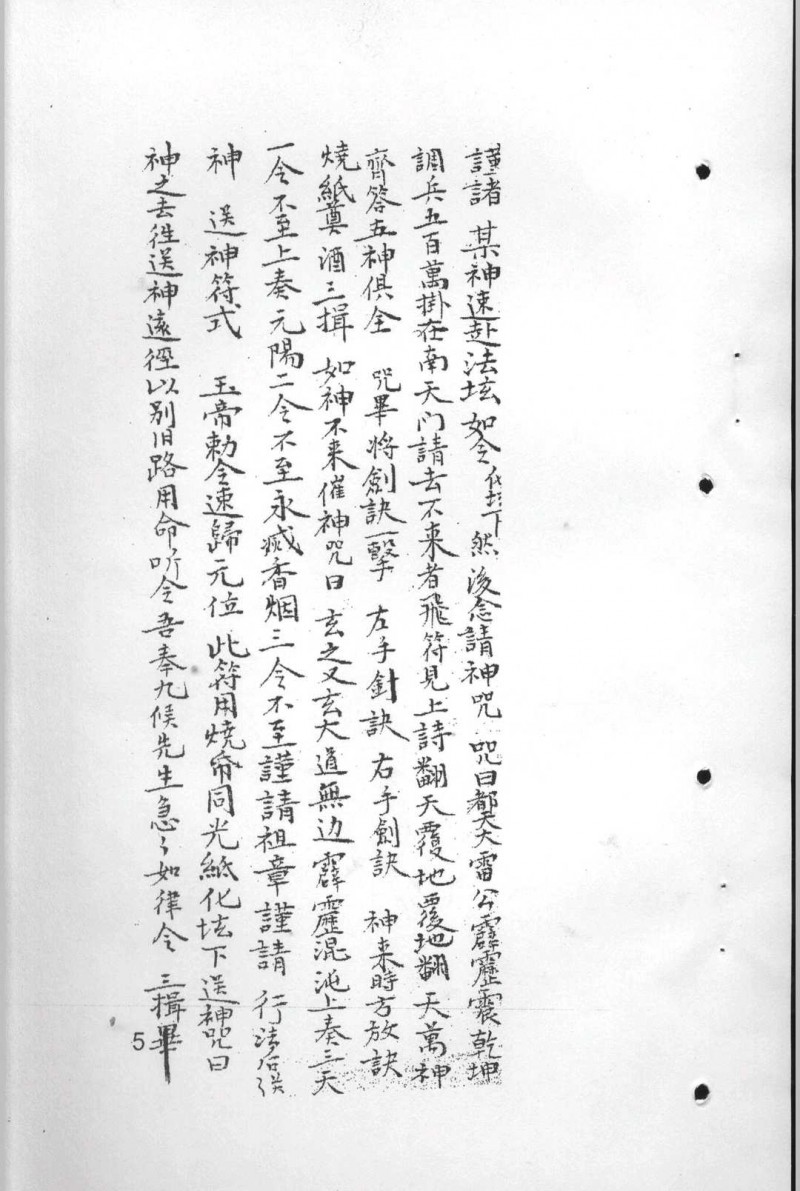 謹諸 某神速赴法坛如令 然後念請神咒 咒曰都天大雷公霹靂震乾坤
調兵五百萬掛在南天门請去不来者飛符見上詩翻天覆地覆地翻天萬神
齊答五神俱全 咒畢将劍訣一擊 左手針訣右手劍訣 神来時方放訣
燒紙奠酒三揖 如神不来催神咒曰 玄之又玄大道無边霹靂混沌上奏三天
一令不至上奏元陽二令不至永滅香烟三令不至謹請祖章謹請 行法后送
神 送神符式 玉帝勅令速歸元位 此符用燒帋同光紙化坛下送神咒曰
神之去徃送神遠徑以别旧路用命听令吾奉九候先生急〻如律令 三揖畢
5